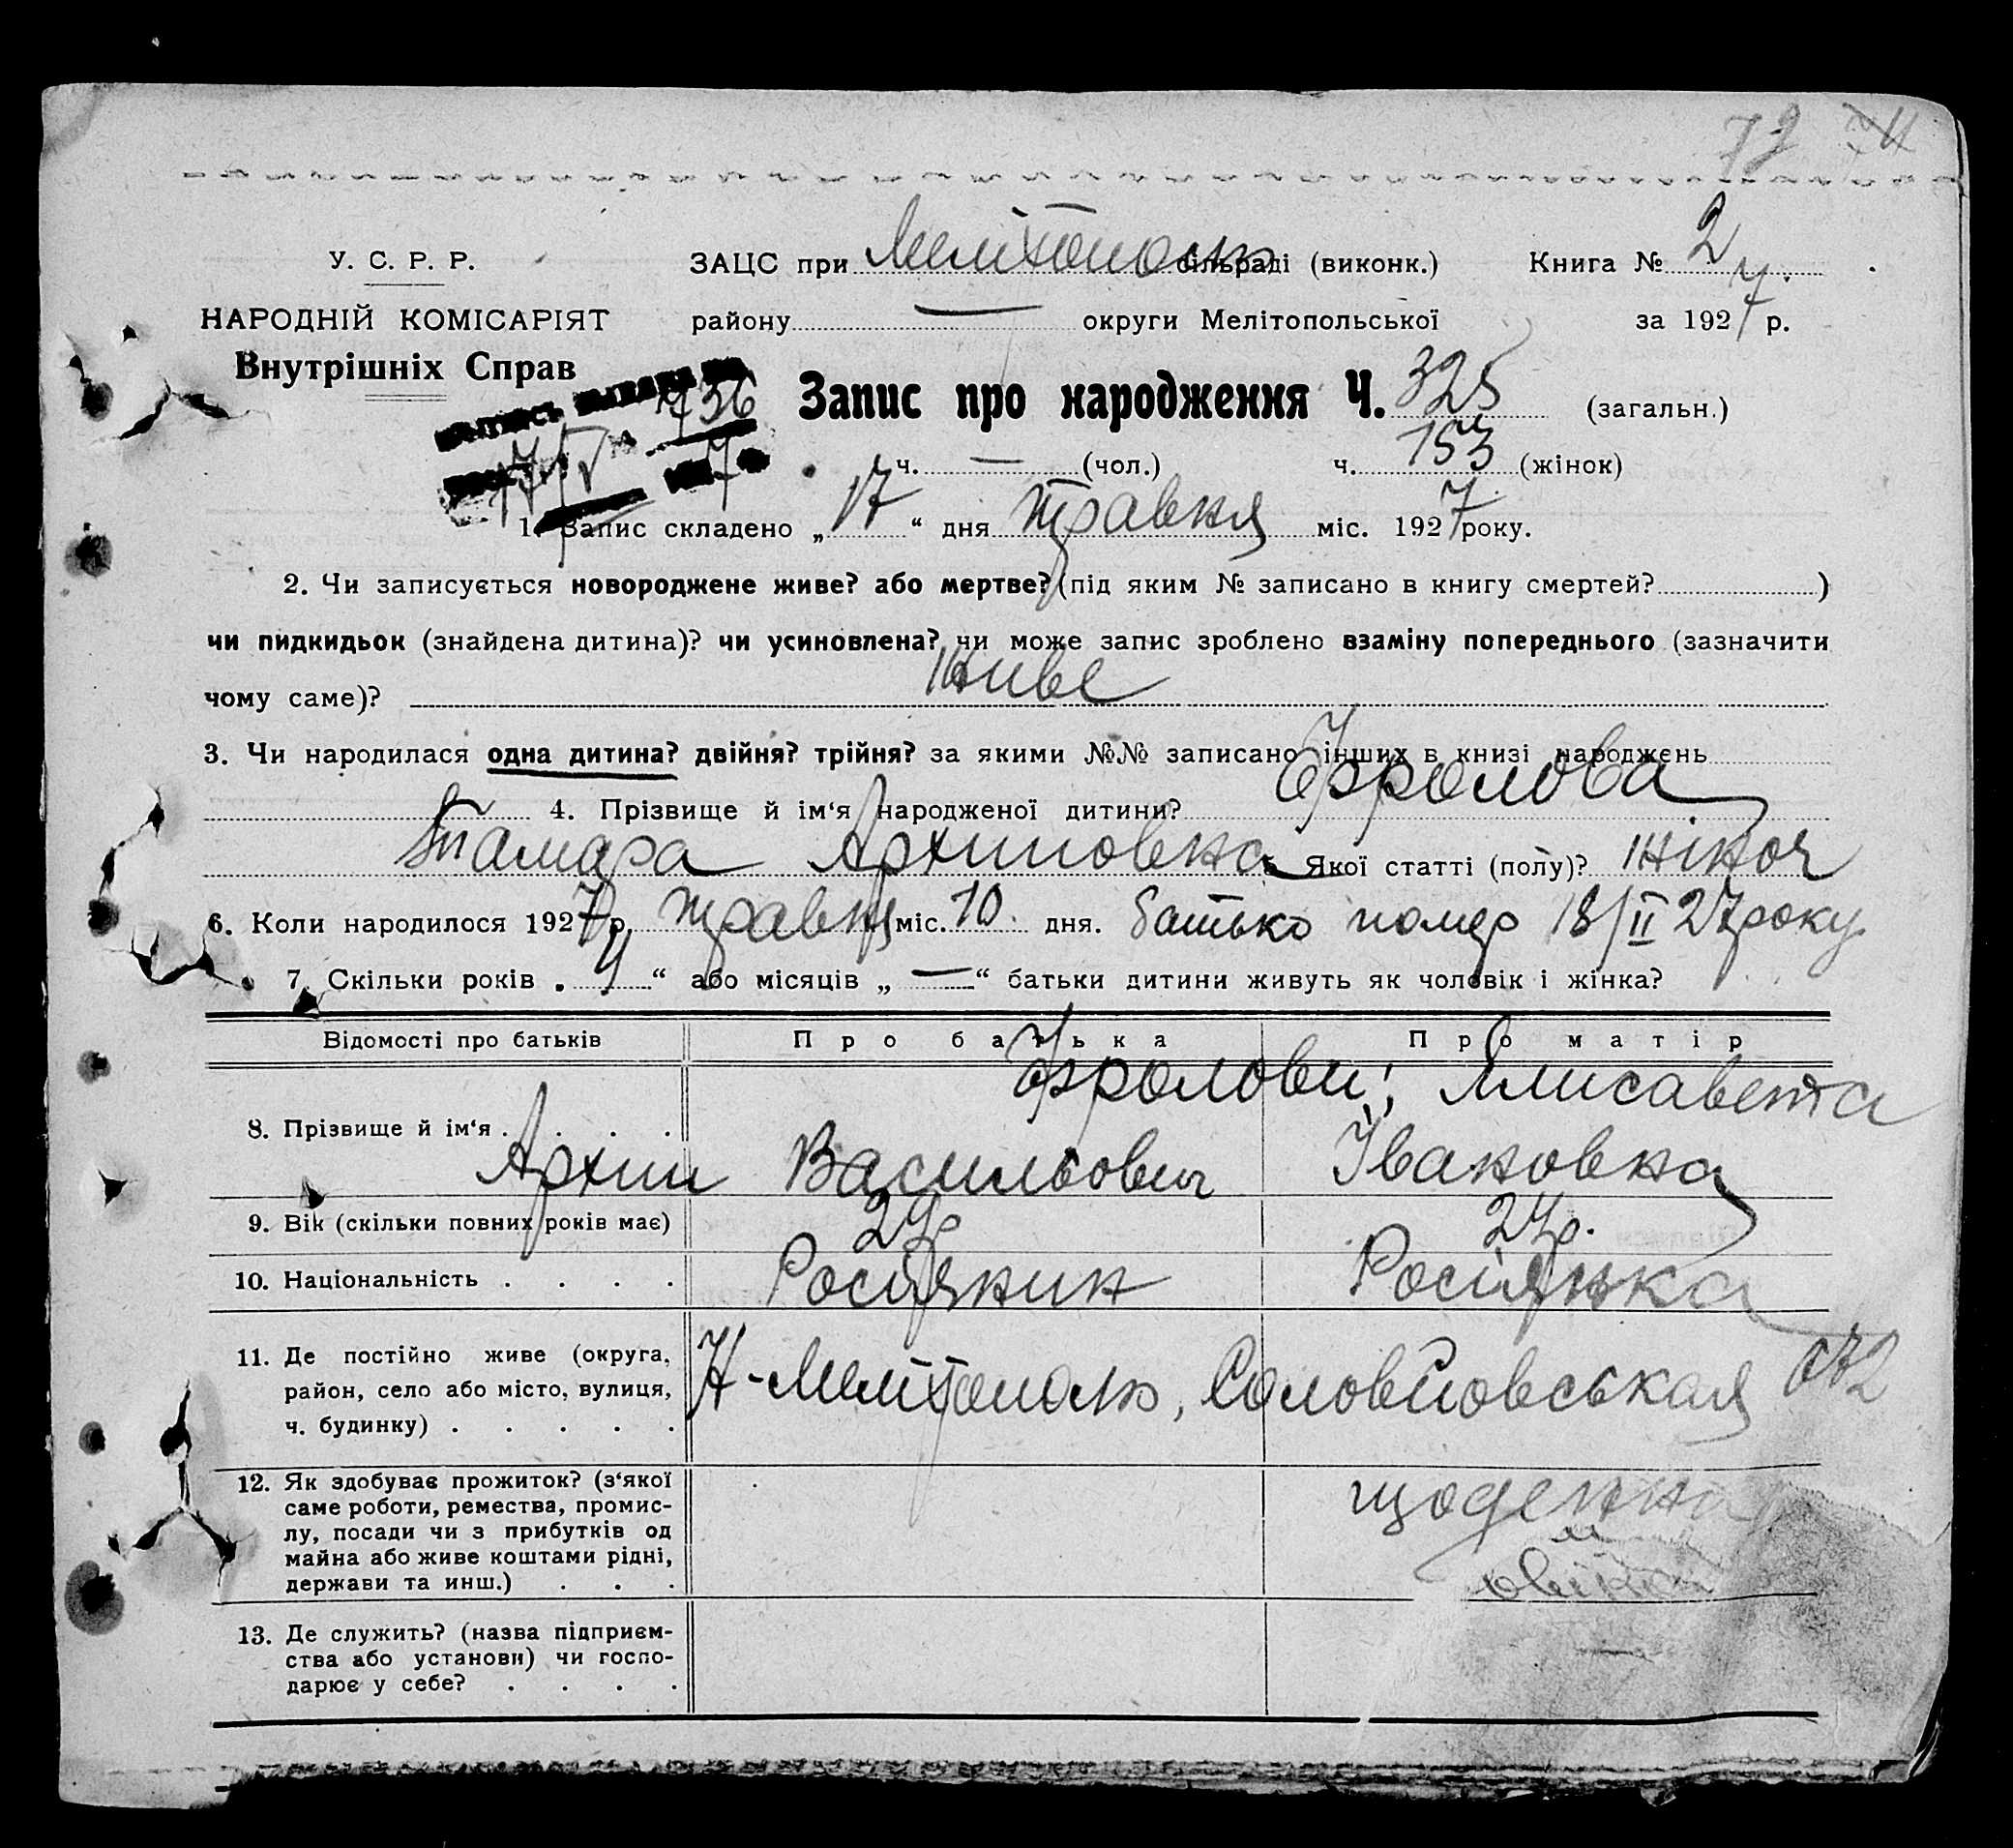 72
У. С. Р. Р.
НАРОДНІЙ КОМІСАРІЯТ
Внутрішніх Справ
ЗАЦС при Мелітополь сільраді (виконк.) Книга № 2
району — округи Мелітопольської за 1927 р.
Запис про народження Ч. 325 (загальн.)
736
17/V 7
ч. — (чол.) ч. 153 (жінок)
1. Запис складено „17“ дня травня міс. 1927 року.
2. Чи записується новороджене живе? або мертве? (під яким № записано в книгу смертей? )
чи пидкидьок (знайдена дитина)? чи усиновлена? чи може запис зроблено взаміну попереднього (зазначити
чому саме)? живе
3. Чи народилася одна дитина? двійня? трійня? за якими №№ записано інших в книзі народжень
4. Прізвище й ім‘я народженої дитини? Фролова
Тамара Архиповна Якої статті (полу)? жіноч
6. Коли народилося 1927 р. травня міс. 10 дня. батько помер 18/II 27 року
7. Скільки років „4“ або місяців „—“ батьки дитини живуть як чоловік і жінка?
Відомості про батьків Про батька Про матір
8. Прізвище й ім‘я Фролови; Єлисавета
Архип Васильович Івановна
9. Вік (скільки повних років має) 29р 27р.
10. Національність Росіянин Росіянка
11. Де постійно живе (округа, район, село або місто, вулиця, ч. будинку) Н-Мелітополь, Соловйовськая
12. Як здобуває прожиток? (з‘якої саме роботи, ремества, промислу, посади чи з прибутків од майна або живе коштами рідні, держави та инш.) щоденна
13. Де служить? (назва підприємства або установи) чи господарює у себе?